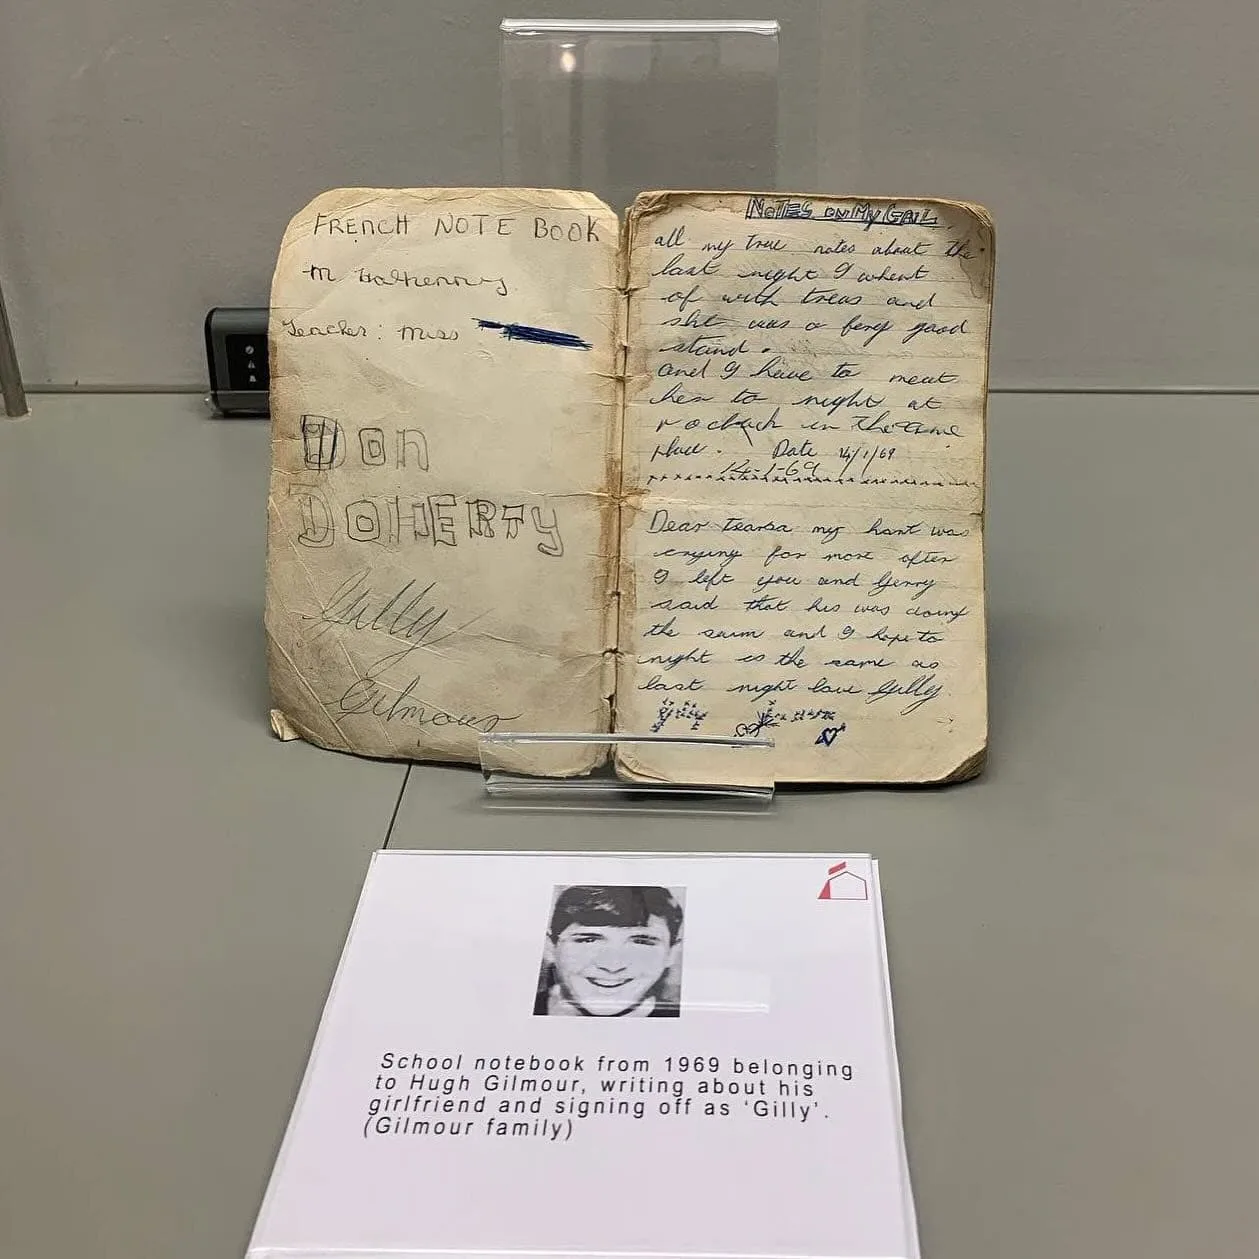 FRENCH NOTE BOOK
Teacher: Miss
Don
DOHERTY
Gilly
Gilmour
NOTES ON MY GAIL
all my true notes about the
last night I whent
of with treas and
she was a fery good
stand.
and I have to meat
her to night at
in the same
place. Date 14/1/69
14-1-69
Dear tearsa my hart was
crying for more after
I left you and Gerry
said that his was doing
the saim and I hope to
night is the same as
last night love Gilly.
School notebook from 1969 belonging
to Hugh Gilmour, writing about his
girlfriend and signing off as ‘Gilly’.
(Gilmour family)